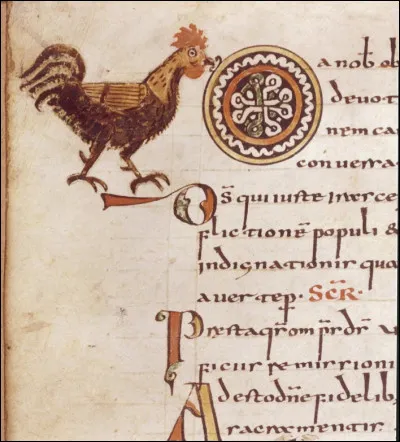 Da nob ob
devot
nem ca
conversa
Ds qui iuste irasce
flictione populi &
indignationis qua
avertep. SCR.
Presta qs om
remissioni
Adesto dne fidelib
sacramentis